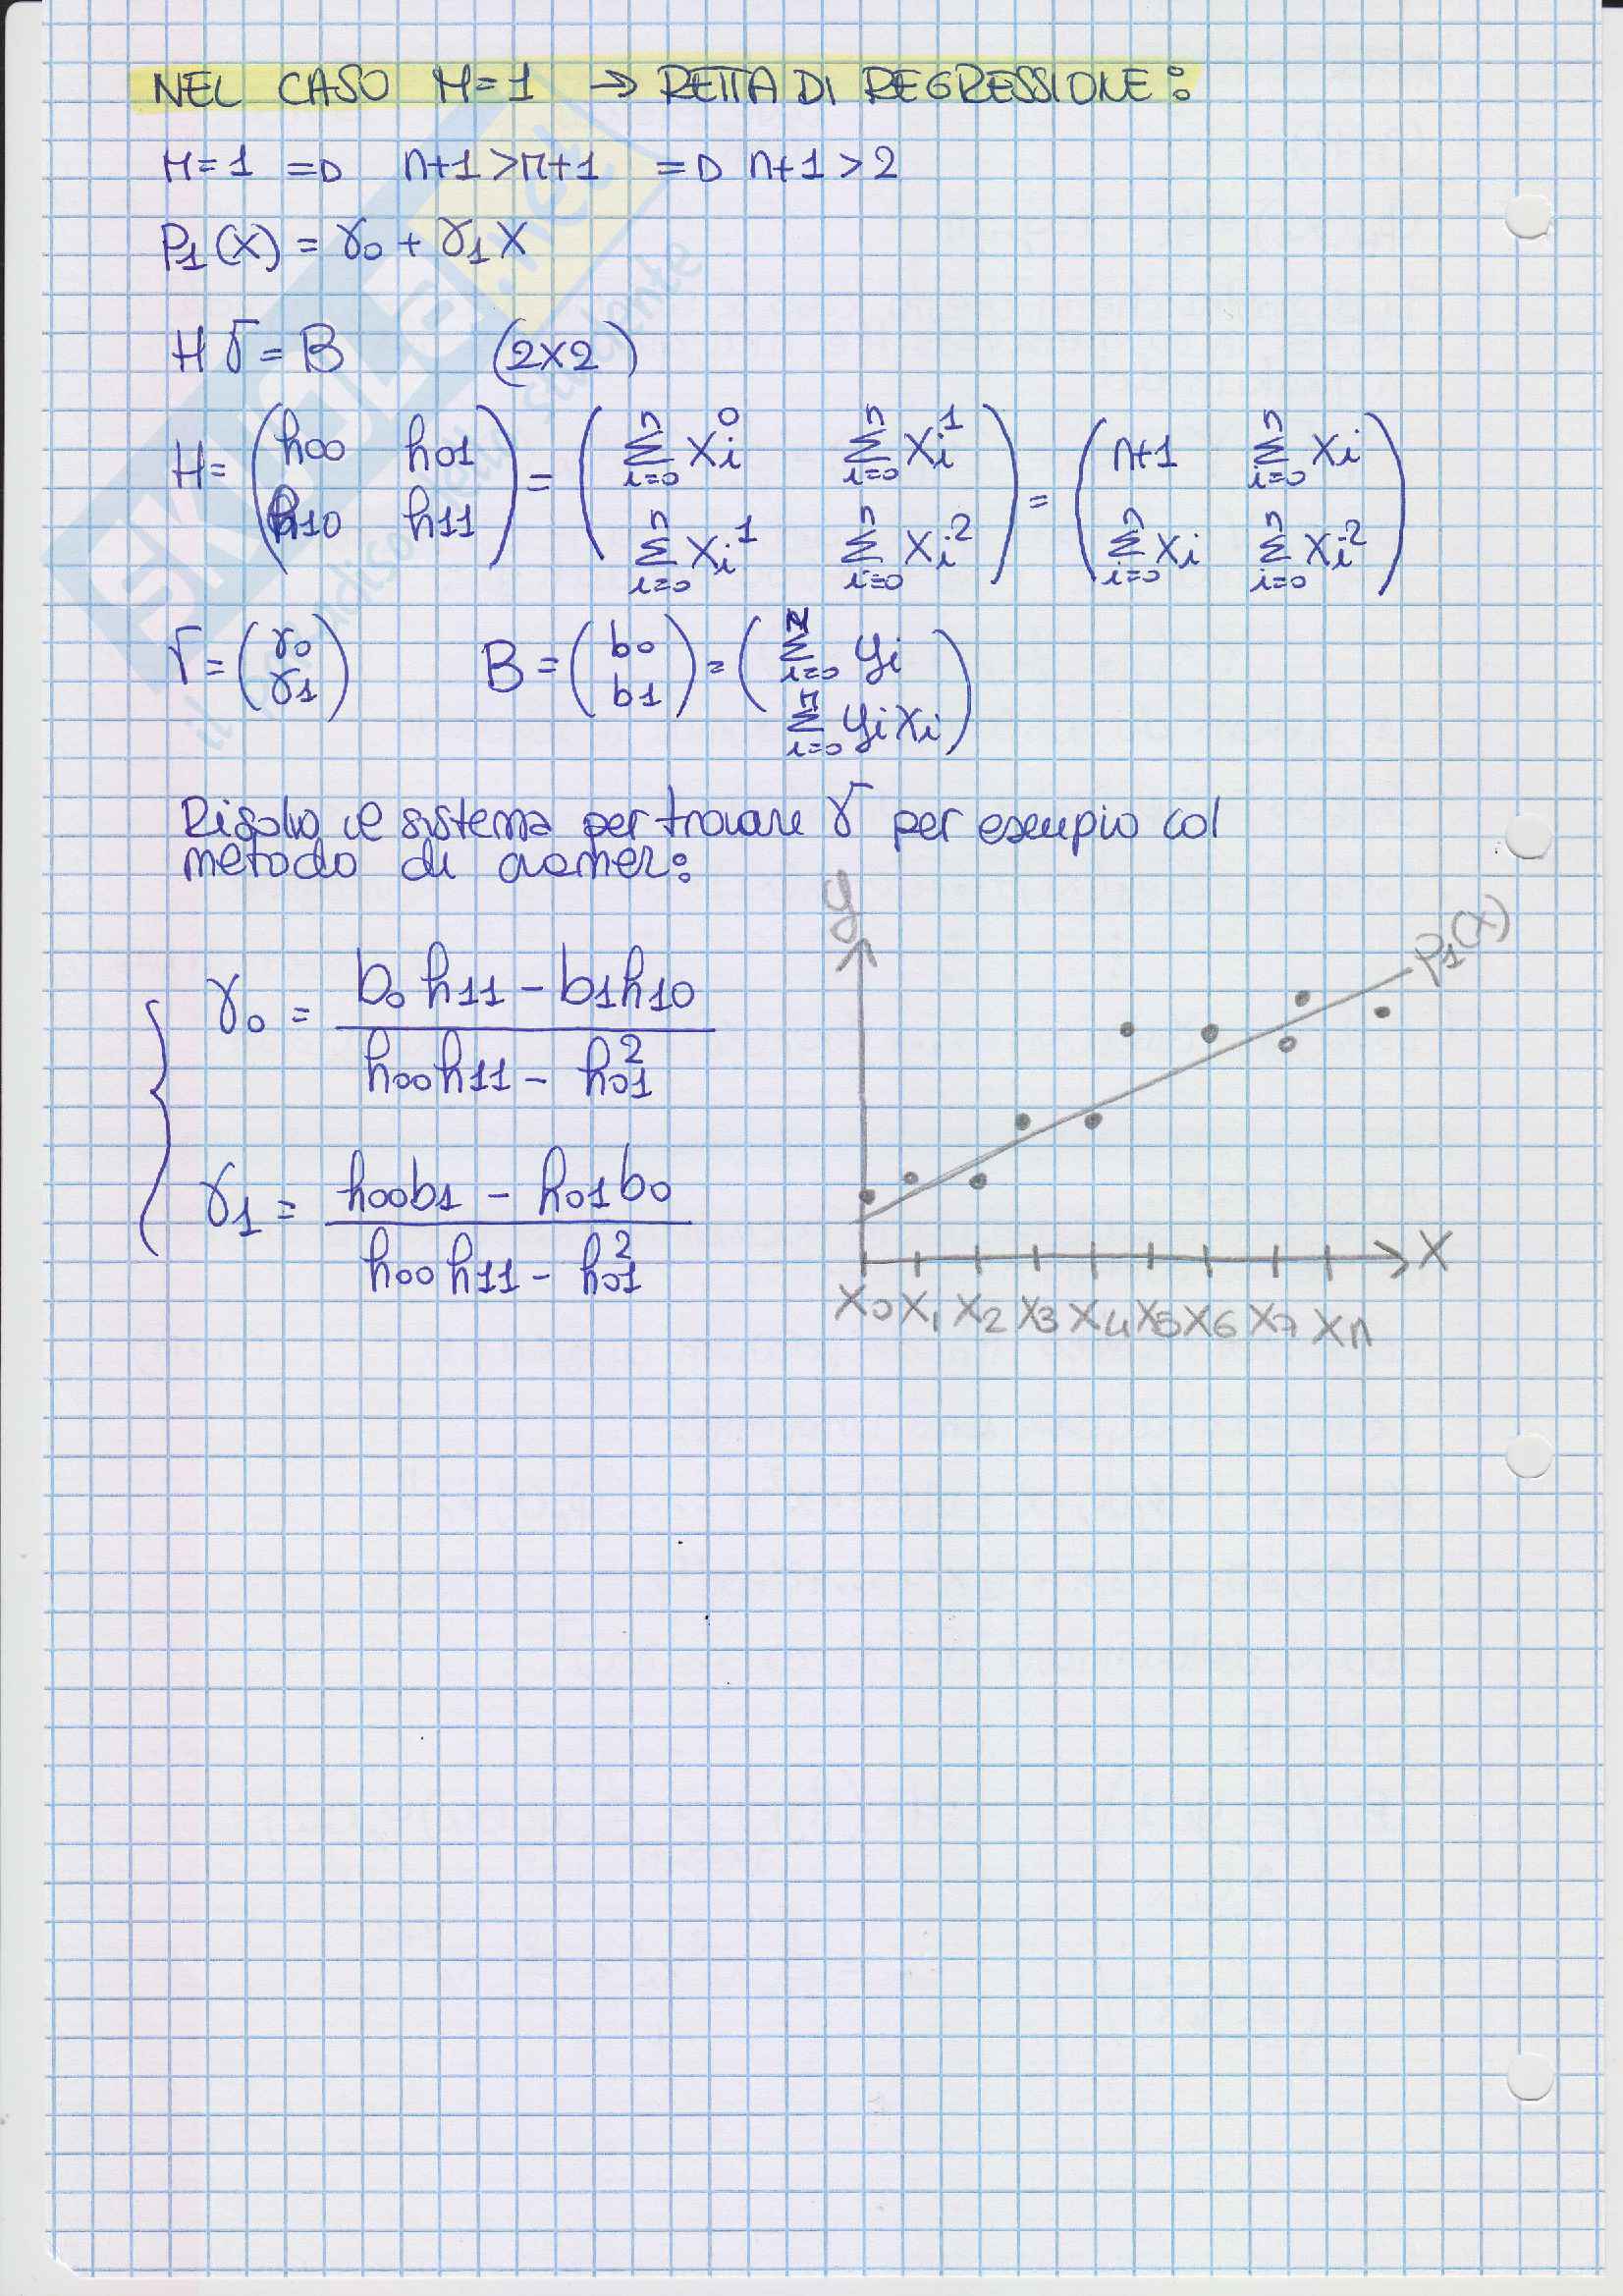 NEL CASO M=1 → RETTA DI REGRESSIONE:
M=1 => n+1>m+1 => n+1>2
P₁(x) = γ₀ + γ₁x
HΓ=B (2x2)
H = (h₀₀ h₀₁ ; h₁₀ h₁₁) = (Σᵢ₌₀ⁿ xᵢ⁰ Σᵢ₌₀ⁿ xᵢ¹ ; Σᵢ₌₀ⁿ xᵢ¹ Σᵢ₌₀ⁿ xᵢ²) = (n+1 Σᵢ₌₀ⁿ xᵢ ; Σᵢ₌₀ⁿ xᵢ Σᵢ₌₀ⁿ xᵢ²)
Γ = (γ₀ ; γ₁) B = (b₀ ; b₁) = (Σᵢ₌₀ⁿ yᵢ ; Σᵢ₌₀ⁿ yᵢxᵢ)
Risolvo il sistema per trovare Γ per esempio col
metodo di cramer:
γ₀ = (b₀h₁₁ - b₁h₁₀) / (h₀₀h₁₁ - h₀₁²)
γ₁ = (h₀₀b₁ - h₀₁b₀) / (h₀₀h₁₁ - h₀₁²)
y
P₁(x)
x
x₀ x₁ x₂ x₃ x₄ x₅ x₆ x₇ xn
SKUOLA.net